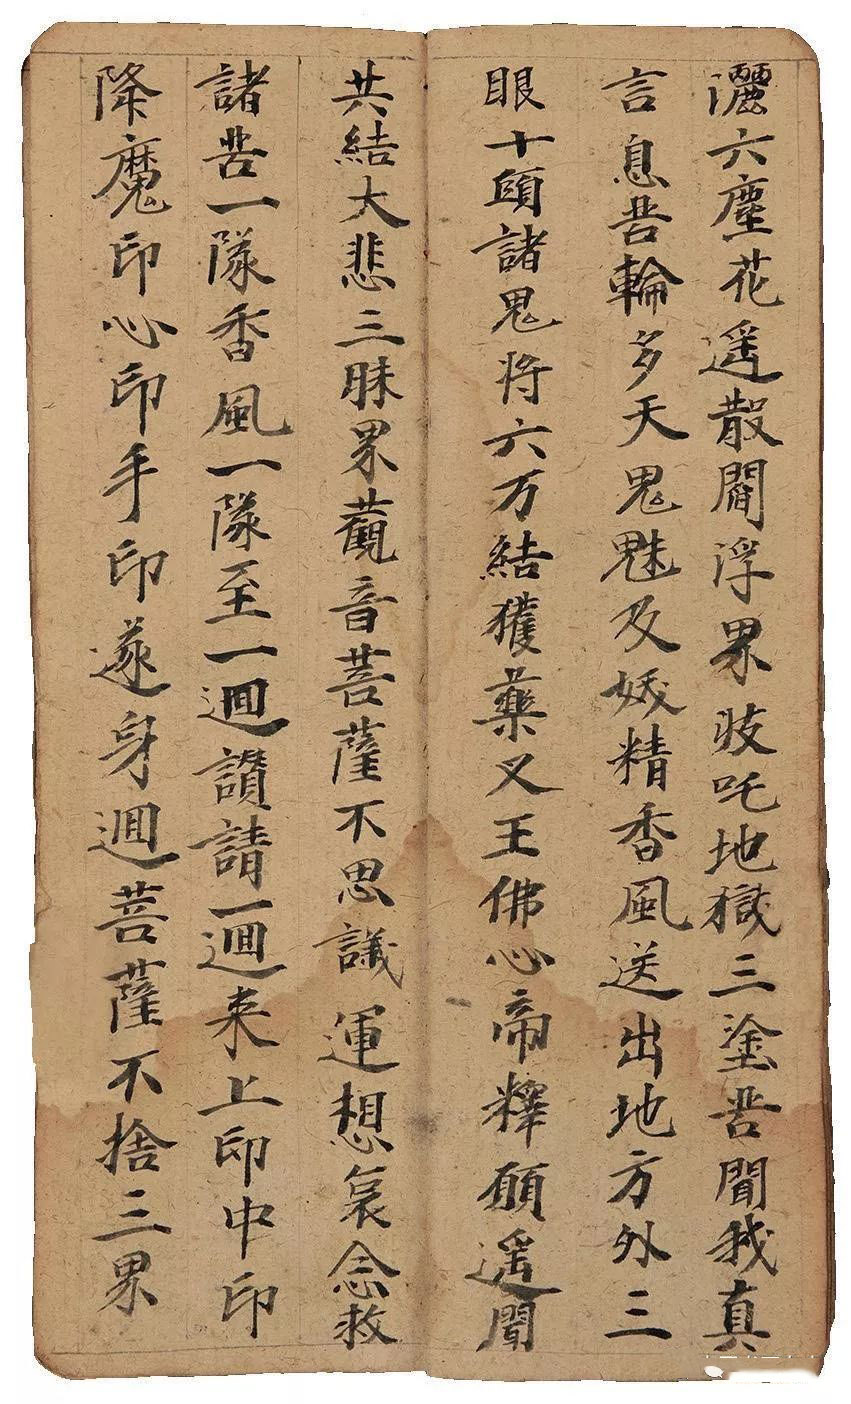 灑六塵花遥散閻浮界歧吒地獄三塗苦聞我真
言息苦輪多天鬼魅及妖精香風送出地方外三
眼十頭諸鬼将六万結獲藥叉王佛心帝釋願遥聞
共結大悲三昧界觀音菩薩不思議運想哀念救
諸苦一隊香風一隊至一迴讚請一迴来上印中印
降魔印心印手印遂身迴菩薩不捨三界